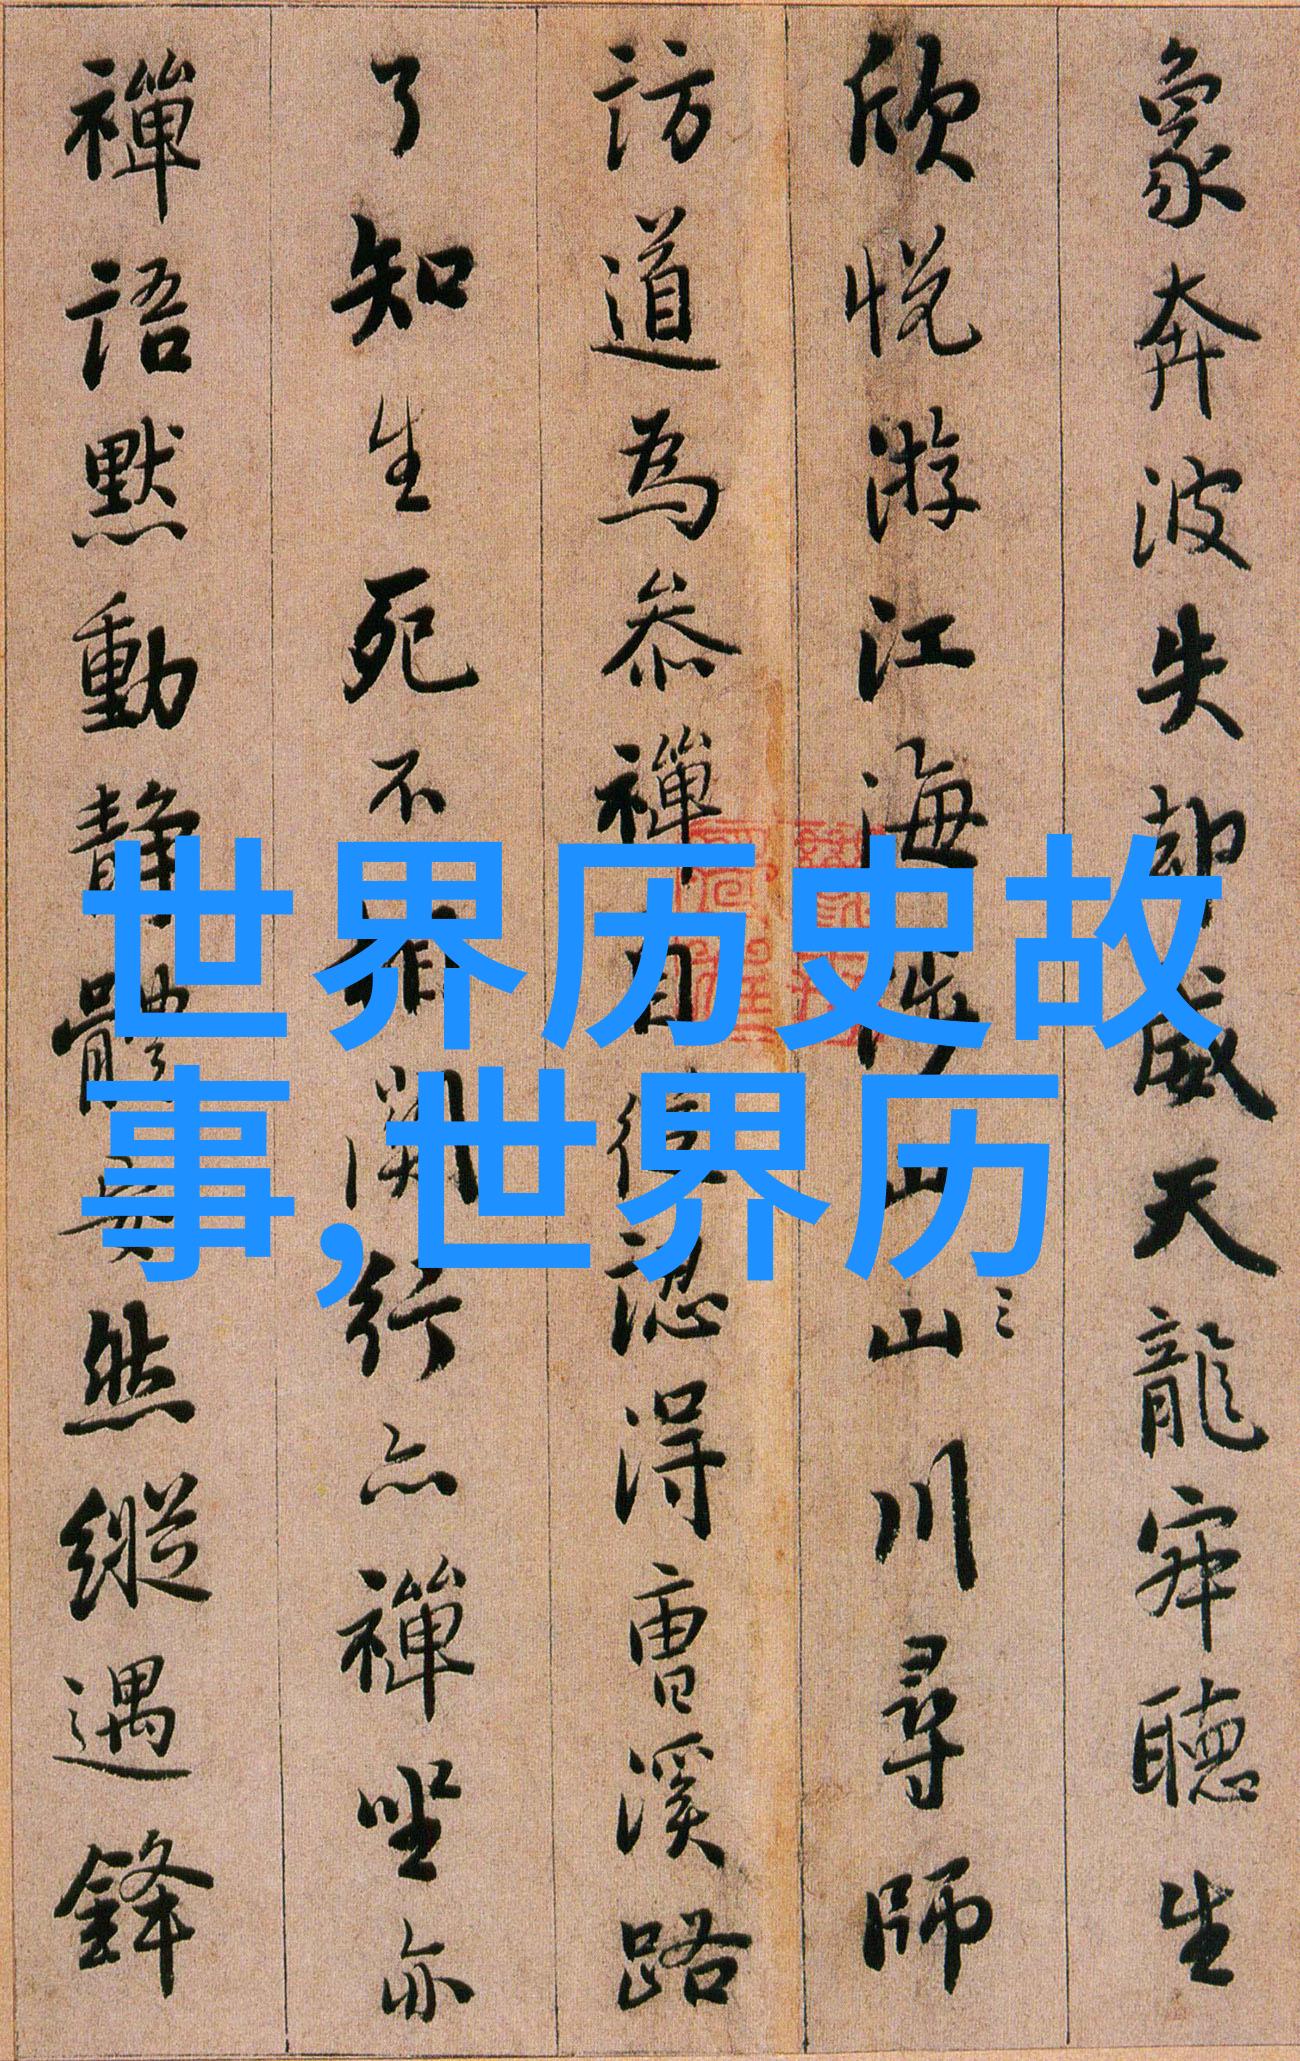 象奔波失却威天龍寂聽生
欣悅游江海涉山川尋師
訪道為参禪自從認得曹溪路
了知生死不相關行亦禪坐亦
禪語默動静體安然縱遇鋒
世界历史故
事,世界历